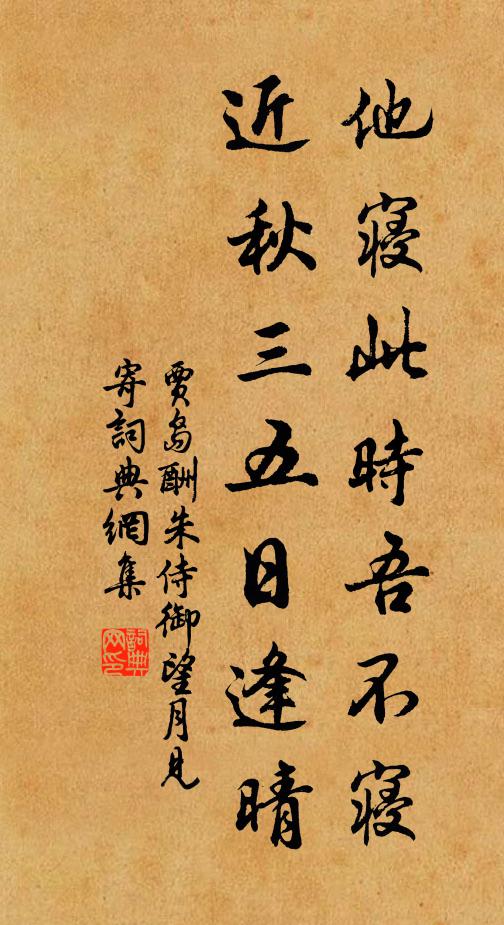 他寢此時吾不寢
近秋三五日逢晴
賈島酬朱侍御望月見
寄詞典網集
詞典网印